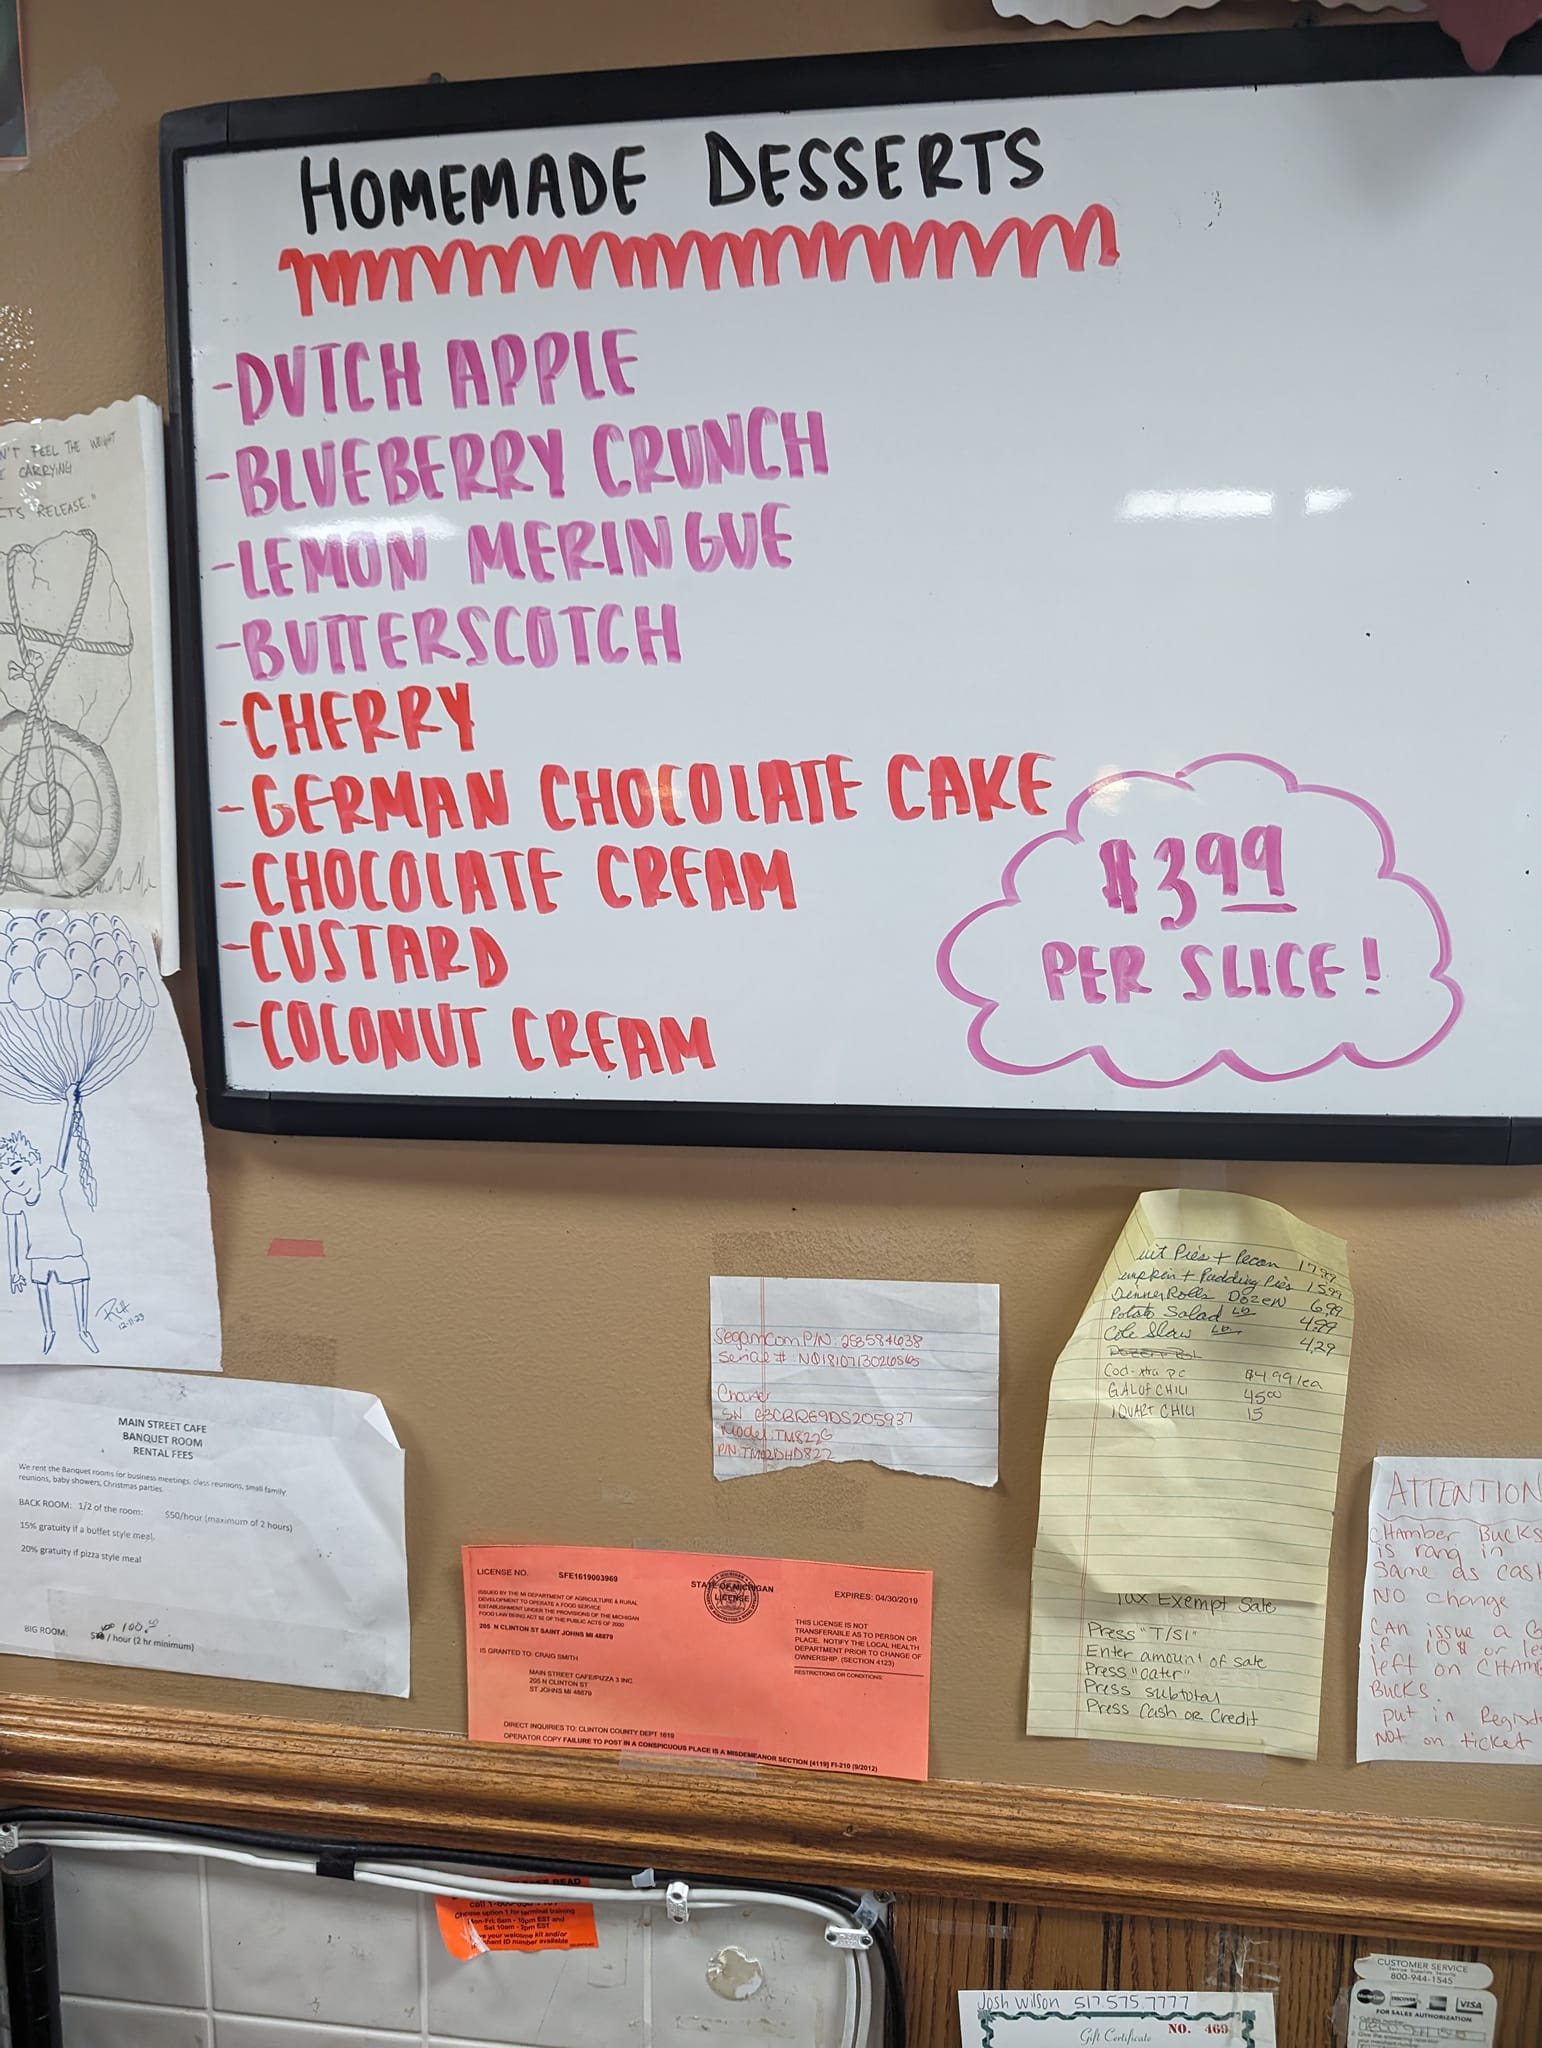 HOMEMADE DESSERTS
-DUTCH APPLE
-BLUEBERRY CRUNCH
-LEMON MERINGUE
-BUTTERSCOTCH
-CHERRY
-GERMAN CHOCOLATE CAKE
-CHOCOLATE CREAM
-CUSTARD
-COCONUT CREAM
$3.99
PER SLICE!
N'T FEEL THE WEIGHT
CARRYING
RELEASE."
12-11-23
MAIN STREET CAFE
BANQUET ROOM
RENTAL FEES
We rent the Banquet rooms for business meetings, class reunions, small family
reunions, baby showers, Christmas parties.
BACK ROOM: 1/2 of the room: $50/hour (maximum of 2 hours)
15% gratuity if a buffet style meal.
20% gratuity if pizza style meal
100.
BIG ROOM: / hour (2 hr minimum)
SagamCom P/N: 253584638
Serial #:
SN
Model: TM822G
P/N:
Pies + Pecan 17.99
+ Pudding Pies 15.99
Dinner Rolls Dozen 6.99
Potato Salad Lb 4.99
Cole Slaw Lb 4.29
Cod-xtra pc $4.99/ea
GAL OF CHILI 45.00
1 QUART CHILI 15
Tax Exempt Sale
Press "T/S1"
Enter amount of sale
Press "cater"
Press subtotal
Press Cash or Credit
ATTENTION
CHAMBER BUCKS
is rang in
Same as cash
NO change
CAN issue a
if 10$ or
left on
BUCKS.
put in
NOT on ticket
LICENSE NO. SFE1619003969
STATE OF MICHIGAN
LICENSE
EXPIRES: 04/30/2019
ISSUED BY THE MI DEPARTMENT OF AGRICULTURE & RURAL
DEVELOPMENT TO OPERATE A FOOD SERVICE
ESTABLISHMENT UNDER THE PROVISIONS OF THE MICHIGAN
FOOD LAW BEING ACT 92 OF THE PUBLIC ACTS OF 2000
205 N CLINTON ST SAINT JOHNS MI 48879
THIS LICENSE IS NOT
TRANSFERABLE AS TO PERSON OR
PLACE. NOTIFY THE LOCAL HEALTH
DEPARTMENT PRIOR TO CHANGE OF
OWNERSHIP. (SECTION 4123)
RESTRICTIONS OR CONDITIONS:
IS GRANTED TO: CRAIG SMITH
MAIN STREET CAFE/PIZZA 3 INC
205 N CLINTON ST
ST JOHNS MI 48879
DIRECT INQUIRIES TO: CLINTON COUNTY DEPT 1619
OPERATOR COPY FAILURE TO POST IN A CONSPICUOUS PLACE IS A MISDEMEANOR SECTION [4119] FI-210 (9/2012)
READ
Choose option 1 for terminal training
Mon-Fri: 8am - 10pm EST and
Sat 10am - 2pm EST
your welcome kit and/or
ID number available
Josh Wilson 517.575.7777
Gift Certificate NO. 469
CUSTOMER SERVICE
800-944-1545
MasterCard DISCOVER VISA
FOR SALES AUTHORIZATION